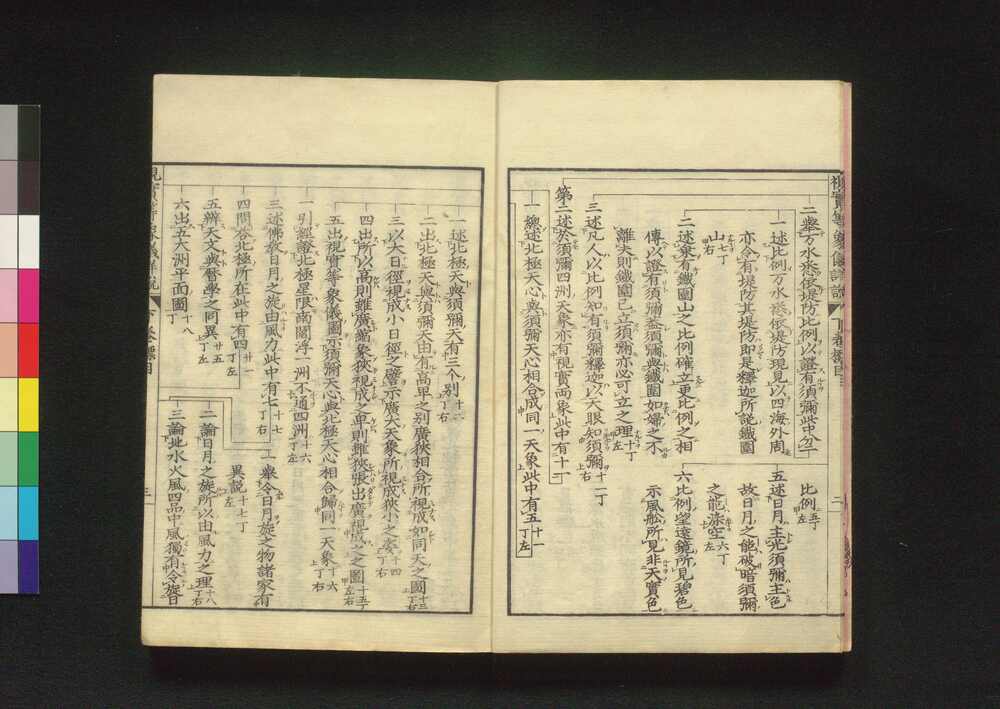 二擧万水悉依堤防比例以證有須彌此中分二
一述比例万水悉依堤防現見以四海外周
亦令有堤防其堤防即是釋迦所説鐵圍
山七丁右
二述兼有鐵圍山之比例確立更比例之相
傳以證有須彌蓋須彌與鐵圍如婦之不
離夫則鐵圍已立須彌亦必可立之理十丁左
三述凡人以比例知有須彌釋迦以天眼知須彌十一丁右
比例五丁左
五述日月主光須彌主色
故日月之能破暗須彌
之能染空六丁左
六比例望遠鏡所見碧色
示風舩所見非天實色
第二述於須彌四洲天象亦有視實兩象此中有十一
一總述北極天心與須彌天心相合成同一天象此中有五十一丁左
一述北極天與須彌天有三个別十二丁右
二出北極天與須彌天由有高卑之別廣狹相合所視成如同天之圖十三丁右
三以大日徑視成小日徑之譬示廣大天象所視成狹小之姿十四丁右
四出所以高則雖廣蹜象狹視成之卑則雖狹張出廣視成之之圖十五丁左右
五出視實等象儀圖示須彌天心與北極天心相合歸同一天象十六丁右
一引經證北極星限南閻浮一洲不通四洲十六丁左
三述佛敎日月之旋由風力此中有七十七丁右
四問答北極所在此中有四廿一丁左
五辨天文與曆學之同異廿五丁左
六出五大洲平面圖十八丁
一擧令日月旋之物諸家有
異説十七丁左
二論日月之旋所以由風力之理十八丁右
三論地水火風四品中風獨有令旋日